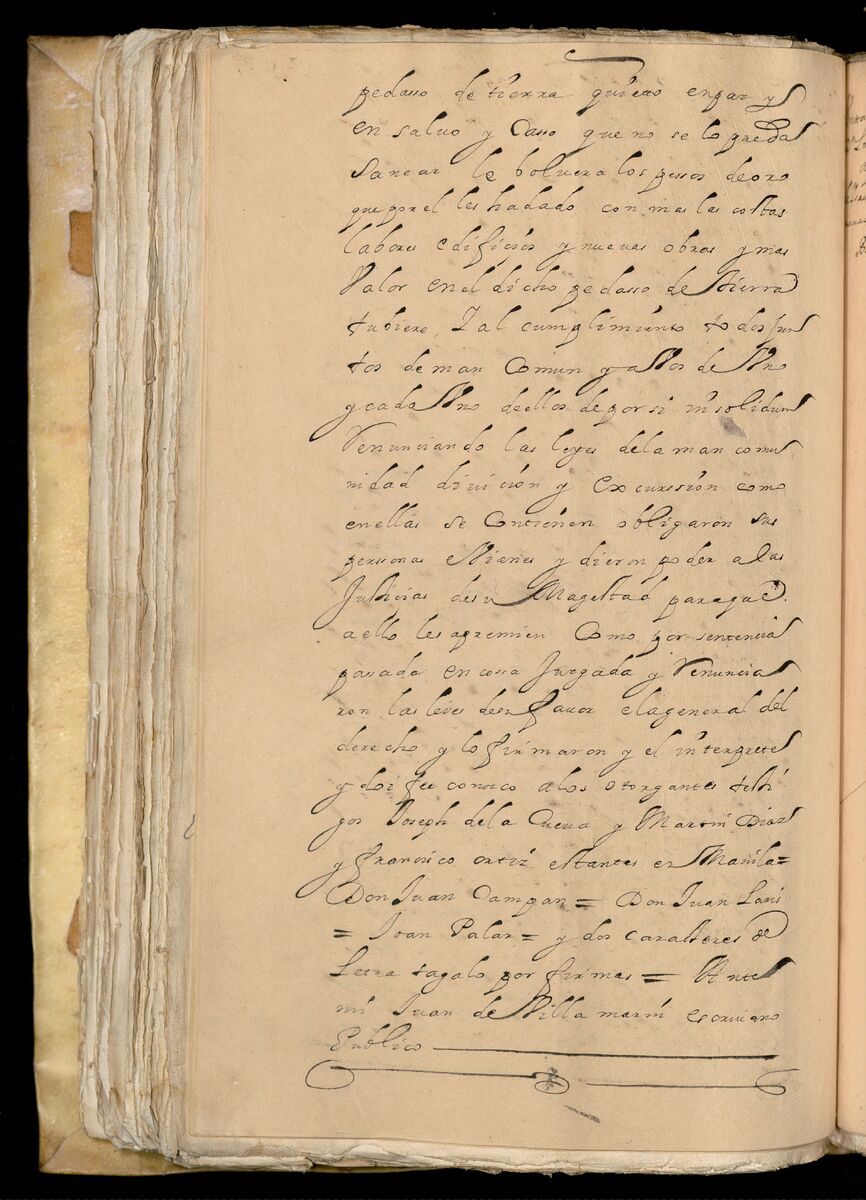 pedasso de tierra quieto en paz y
en saluo y Casso que no se lo puedan
sanear le boluera los pessos de oro
que por el les ha dado con mas las costas
labores edificios y nueuas obras y mas
Valor en el dicho pedasso de tierra
tubiere, I al cumplimiento todos jun
tos de man Comun y a Vos de Vno
y cada Vno de ellos de por si in solidum
Renunciando las leyes de la man comu
nidad diuicion y Excurssion como
en ellas se Contienen obligaron sus
personas e Vienes y dieron poder a las
Justicias de su Magestad para que
a ello les apremien Como por sentencia
pasada en cossa Jusgada y Renuncia
ron las leies de su fauor e la general del
derecho y lo firmaron y el interprete
y doi fee conosco a los otorgantes testi
gos Joseph de la Cueua y Martin Dias
y francisco ortiz estantes en Manila =
Don Juan Campan = Don Juan
= Joan Palar = y dos caracteres de
Letra tagalo por firmas = Ante
mi Juan de Villa marin escriuano
Publico